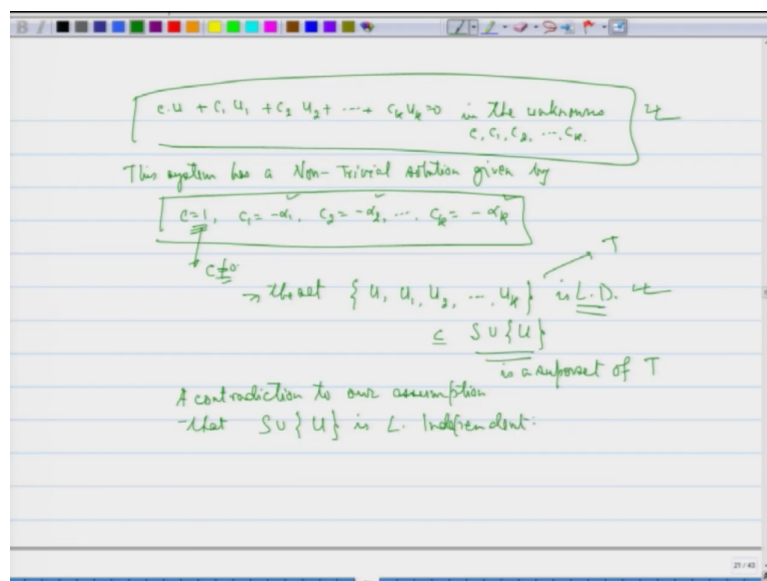 B I
c.u + c₁ u₁ + c₂ u₂ + ... + cₖ uₖ = 0 in the unknowns
c, c₁, c₂, ... cₖ.
This system has a Non-Trivial solution given by
c = 1, c₁ = -α₁, c₂ = -α₂, ..., cₖ = -αₖ
c ≠ 0
T
⇒ the set {u, u₁, u₂, ... uₖ} is L.D.
⊆ S ∪ {u}
is a superset of T
A contradiction to our assumption
that S ∪ {u} is L. Independent.
21 / 43